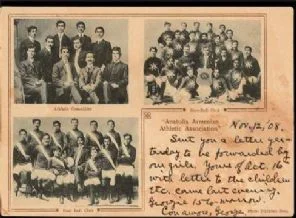 Athletic Committee
Base-Ball Club
"Anatolia Armenian
Athletic Association"
Foot Ball Club
Nov. 12, '08.
Sent you a letter yes-
terday to be forwarded by
our girls. Yours of Oct. 16
with letter to the children
etc. came last evening.
Georgie to-morrow.
Con amore, George.